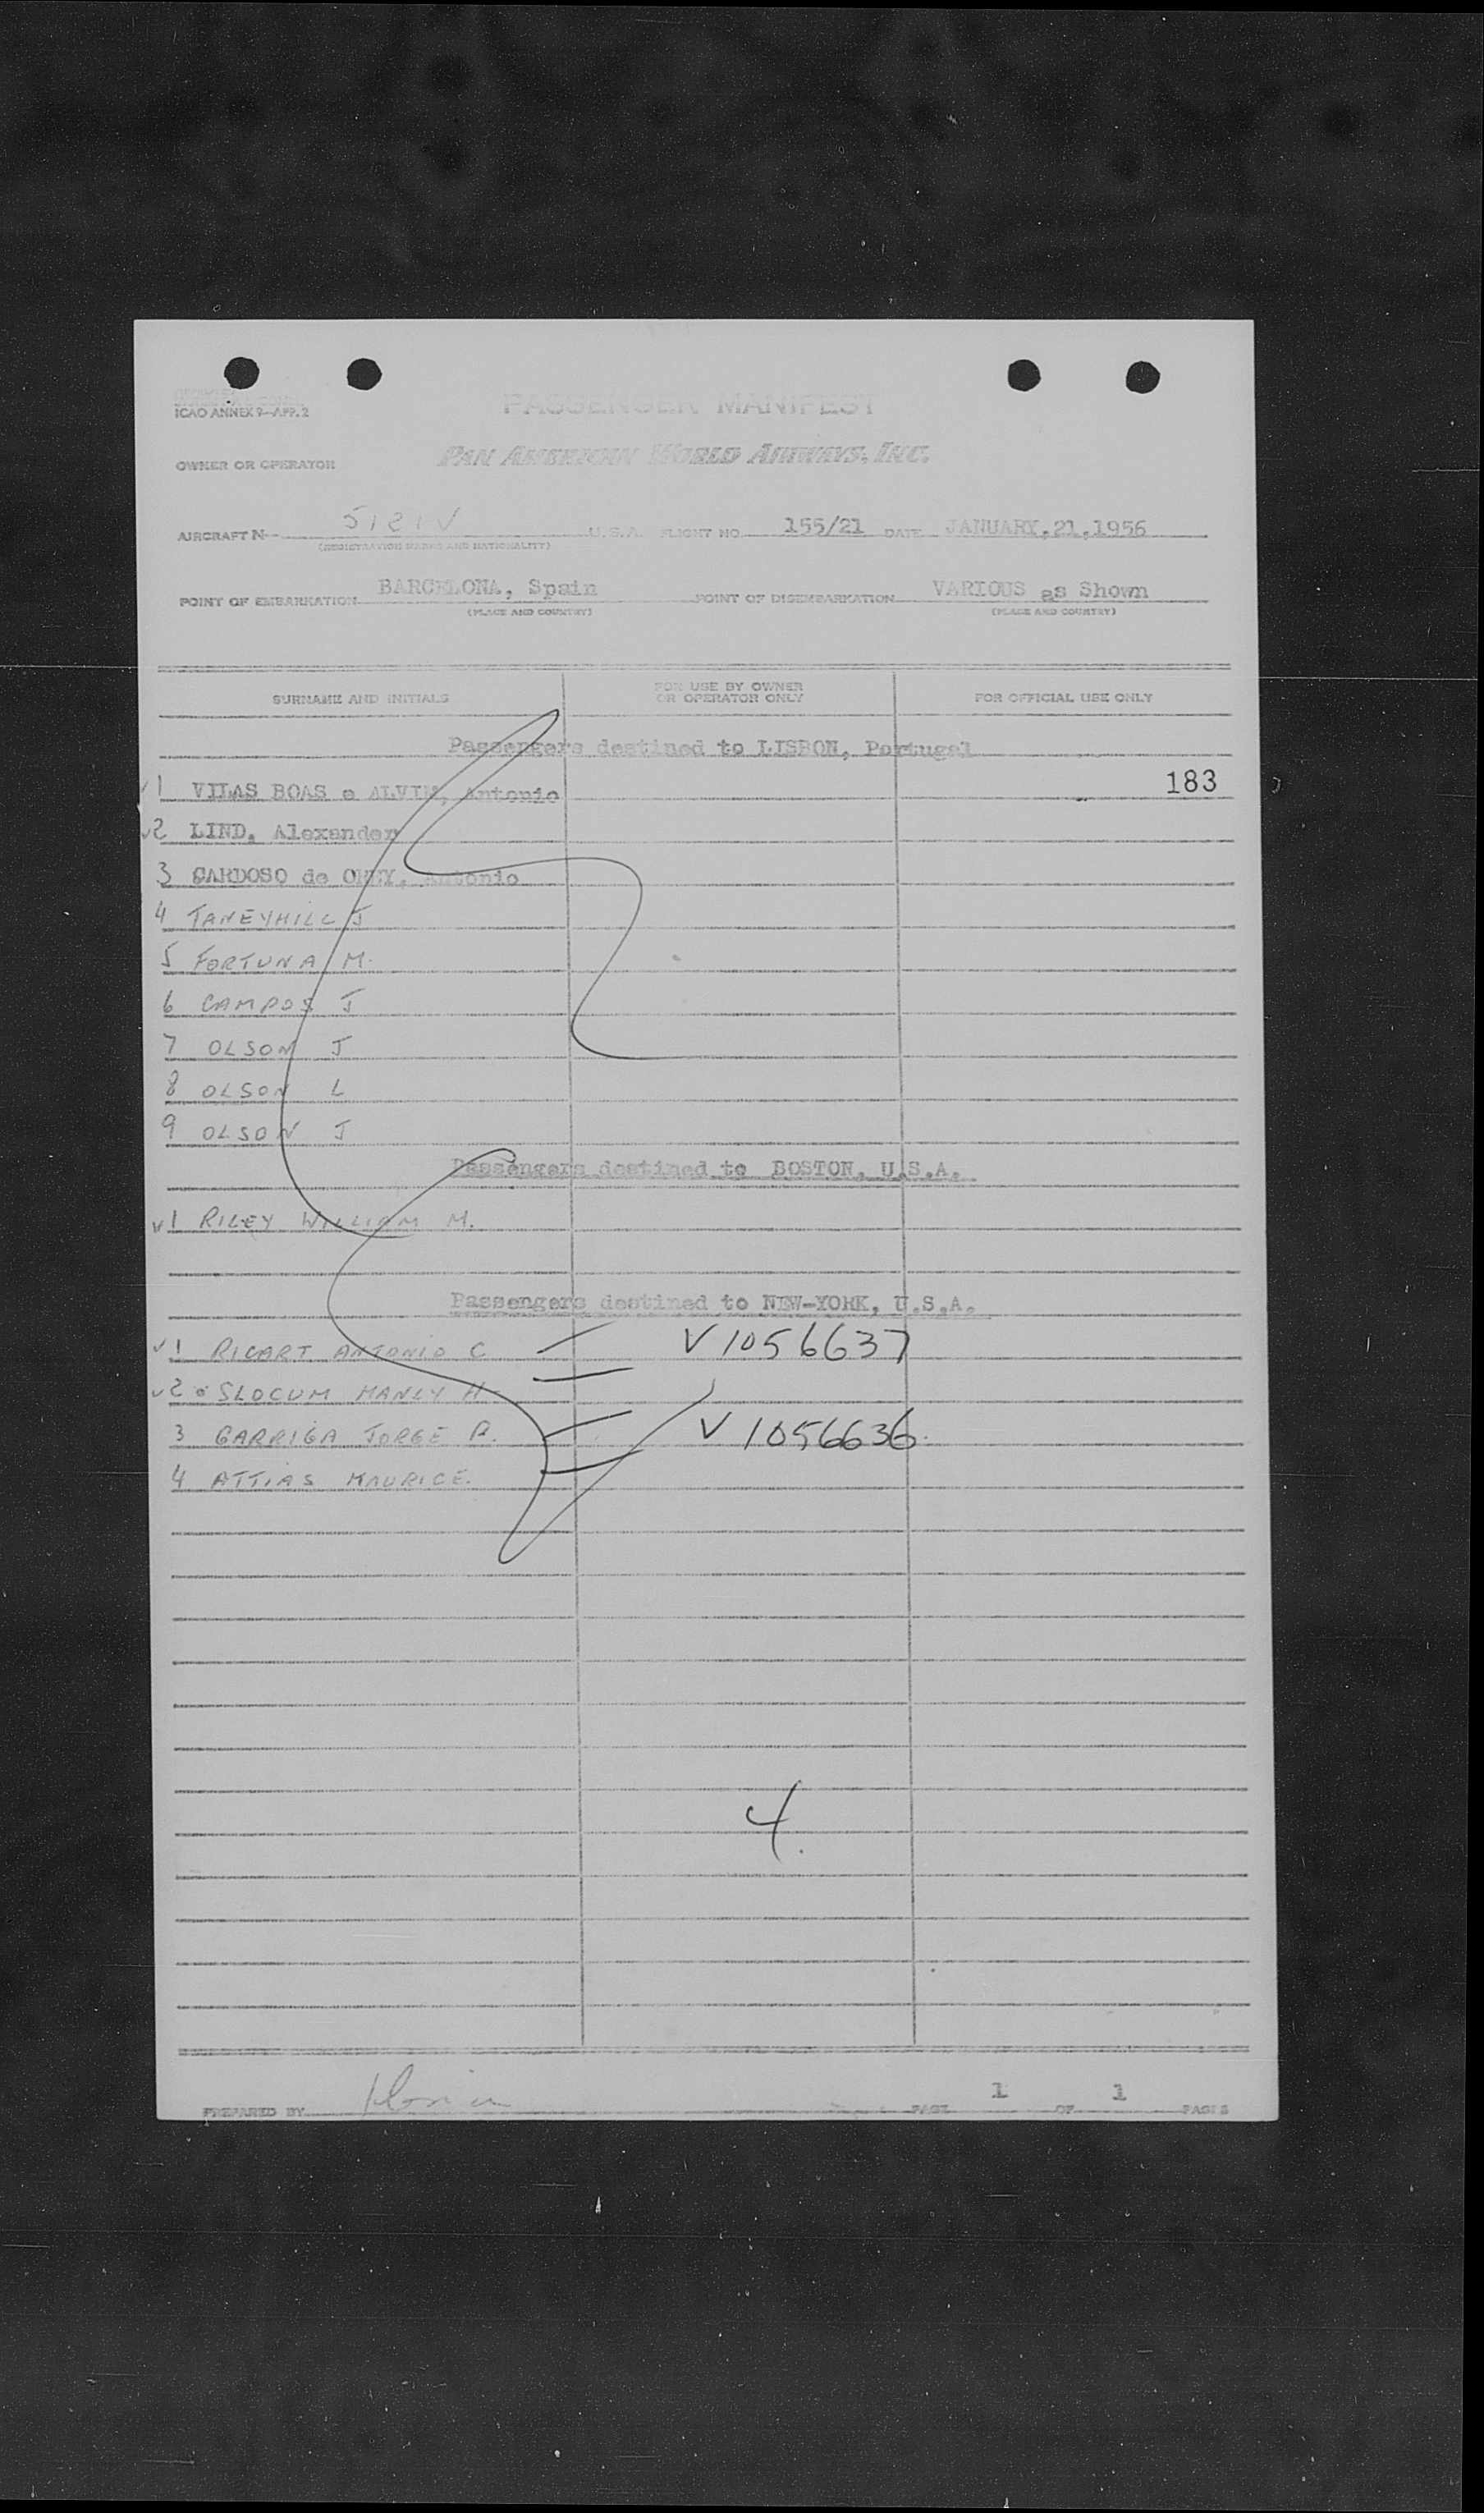 ICAO ANNEX 9—APP. 2
PASSENGER MANIFEST
OWNER OR OPERATOR PAN AMERICAN WORLD AIRWAYS, INC.
AIRCRAFT N- 5121V U.S.A. FLIGHT NO. 155/21 DATE JANUARY,21,1956
(REGISTRATION MARKS AND NATIONALITY)
POINT OF EMBARKATION BARCELONA, Spain POINT OF DISEMBARKATION VARIOUS as Shown
(PLACE AND COUNTRY) (PLACE AND COUNTRY)
SURNAME AND INITIALS FOR USE BY OWNER OR OPERATOR ONLY FOR OFFICIAL USE ONLY
Passengers destined to LISBON, Portugal
1 VILAS BOAS e ALVIM, Antonio 183
2 LIND, Alexander
3 CARDOSO de Antonio
4 TANEYHILL J
5 FORTUNA M.
6 CAMPOS J
7 OLSON J
8 OLSON L
9 OLSON J
Passengers destined to BOSTON, U.S.A.
1 RILEY WILLIAM M.
Passengers destined to NEW-YORK, U.S.A.
1 RICART ANTONIO C V 1056637
2 SLOCUM MANLY H
3 GARRIGA JORGE R. V 1056636
4 ATTIAS MAURICE.
4
PREPARED BY PAGE 1 OF 1 PAGES